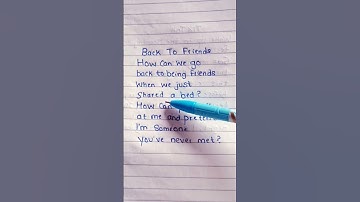 Back To Friends
How Can We go
back to being Friends
When we Just
Shared a bed?
How Can
at me and
I'm Someone
You've never met?